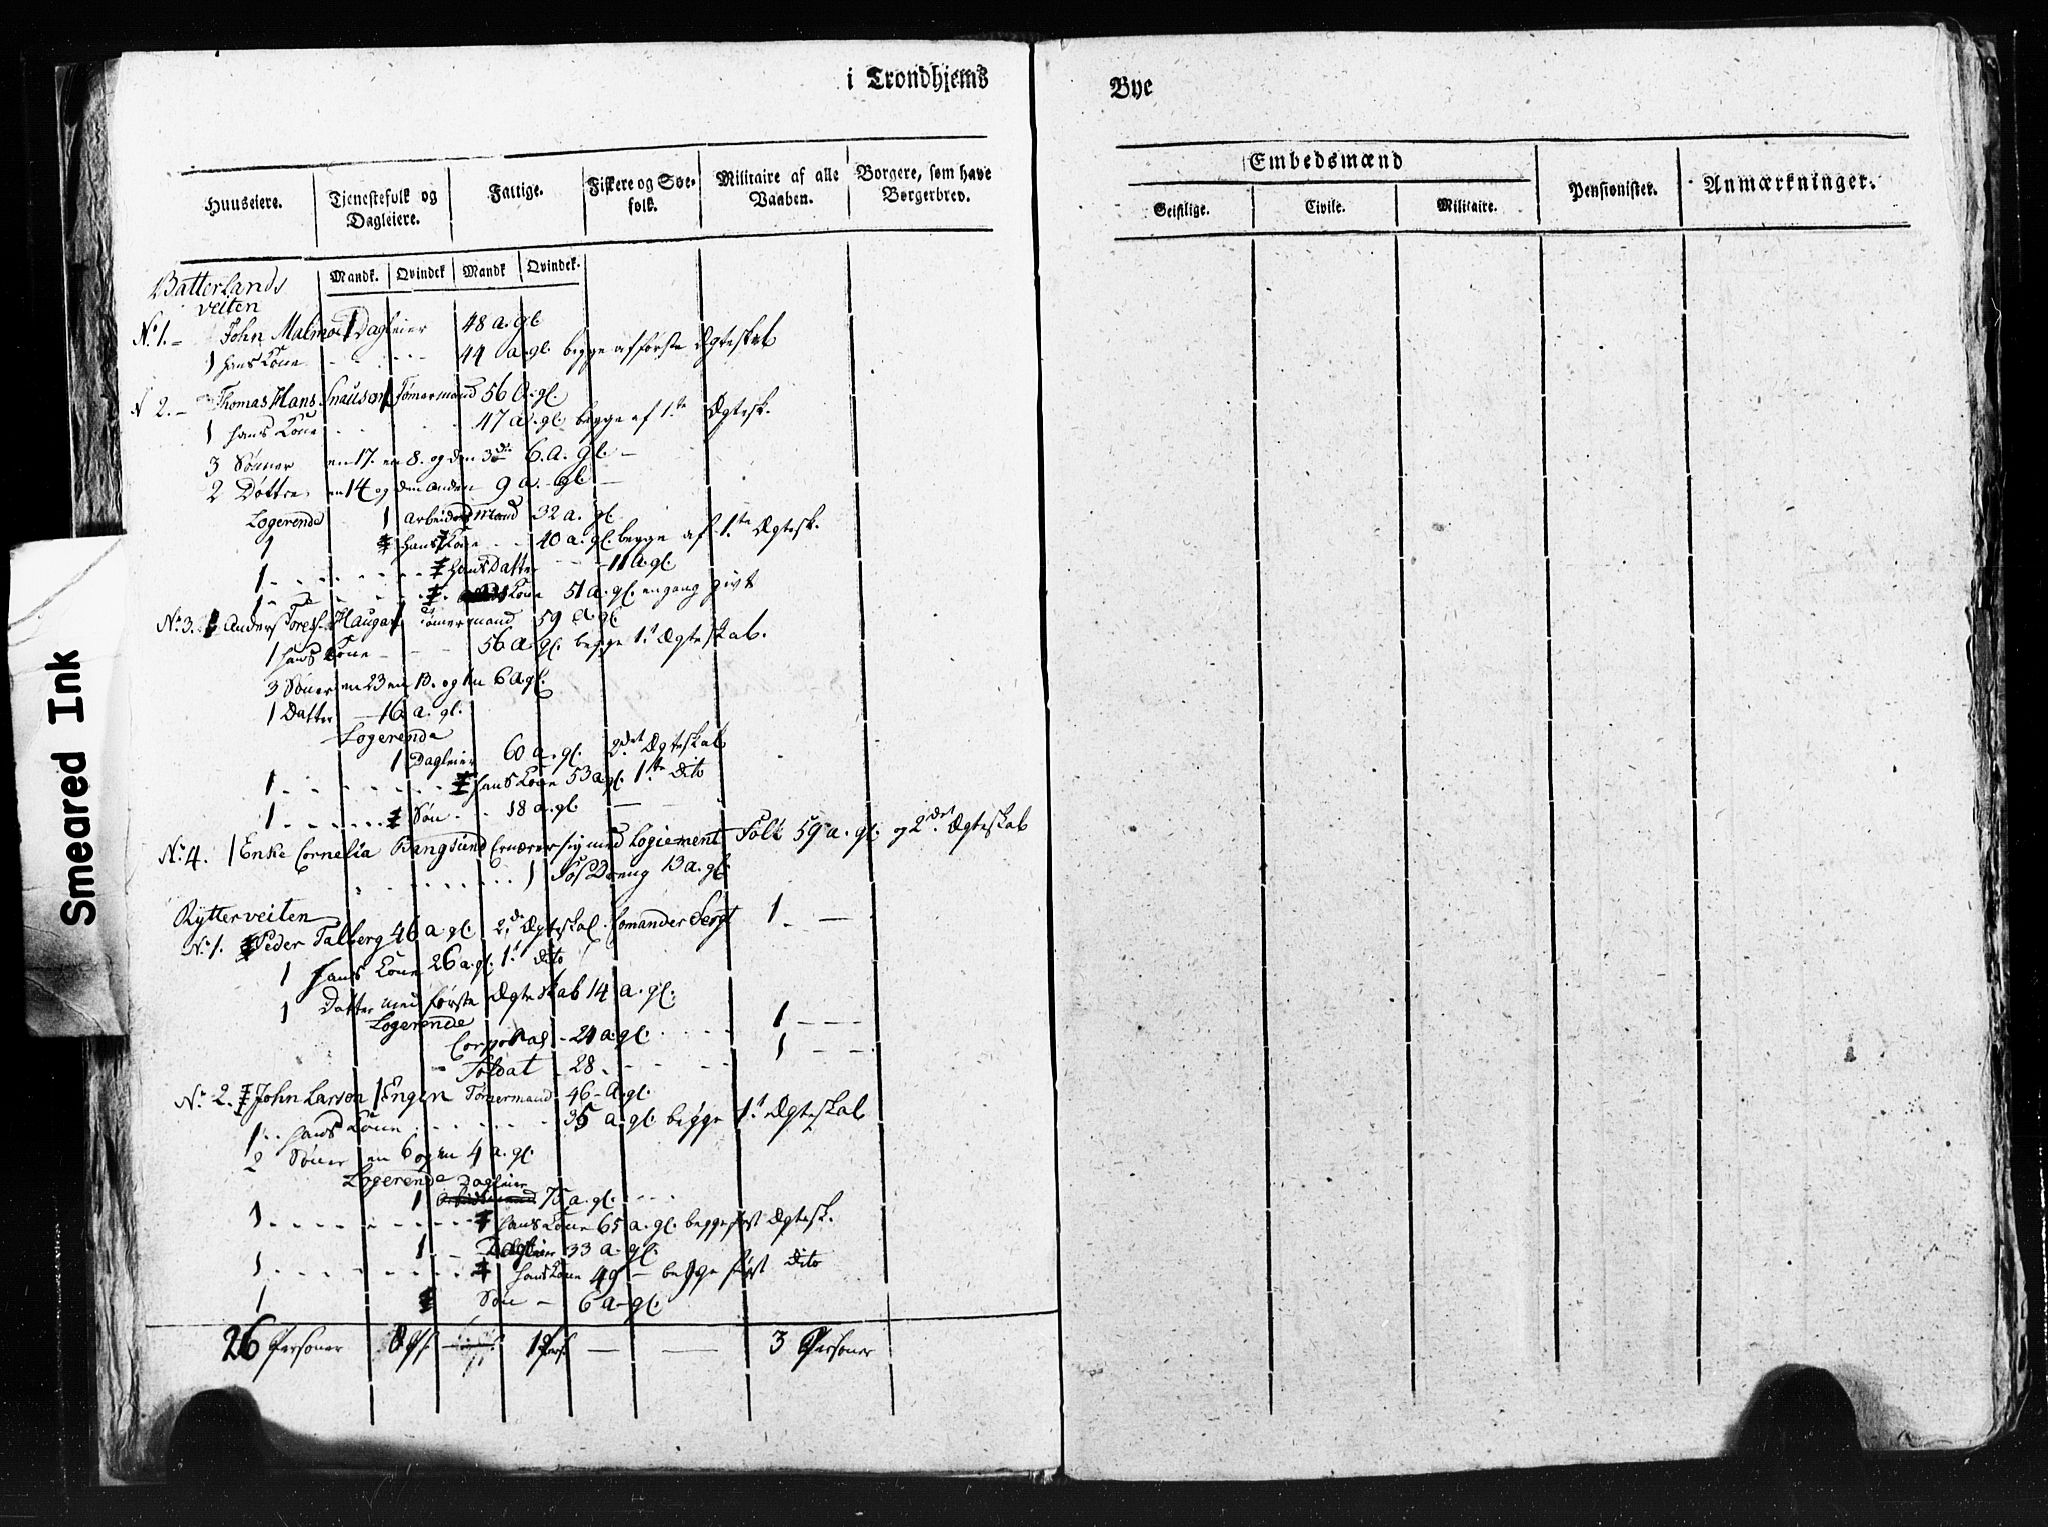 i Trondhjems Bye
Huuseiere. Tjenestefolk og Dagleiere. Fattige. Fiskere og Søe-folk. Militaire af alle Vaaben. Borgere, som have Borgerbrev.
Embedsmænd
Geistlige. Civile. Militaire. Pensionister. Anmærkninger.
Mandk. Qvindek Mandk Qvindek.
Batterlands
veiten
No 1. - John Malmoe 1 Dagleier 48 a. gl
1 hans Kone - - - - 44 a. gl. begge af første Ægteskab
N 2. - Thomas Hans. Snausen 1 Tømermand 56 a. gl.
1 hans Kone - - - 47 a. gl. begge af 1.te Ægtesk.
3 Sønner en 17. en 8. og den 3de 6. a. gl. -
2 Døttre en 14 og den anden 9 a. gl. -
Logerende 1 Arbeids Mand 32 a. gl.
1 hans Kone - - 40 a. gl. begge af 1.te Ægtesk.
1 - - - - - - hans Datter - - 11 a. gl.
1 - - - - - Kone 51 a. gl. engang givt
No 3. Anders Toresf. Haugan 1 Tømermand 59 a. gl.
1 hans Kone - - - 56 a. gl. begge 1.t Ægteskab.
3 Søner en 23 en 13. og en 6 a gl.
1 Datter - 16 a. gl.
Logerende
1 Dagleier 60 a. gl. 2det Ægteskab
1 - - - - - - - hans Kone 53 a gl. 1.ste Dito
1 - - - - - Søn - - 18 a. gl. - -
No 4. 1 Enke Cornelia Bangsund Ernærer sig med Logiement Folk 59 a. gl. 2.det Ægteskab
- - - - - - 1 Fos Dreng 13 a. gl
Rytterveiten
No 1. Peder Talberg 46 a gl. 2.de Ægteskab. Comander Sergt 1 - -
1 hans Kone 26 a. gl. 1.t Dito
1 Datter med første Ægteskab 14 a. gl.
Logerende
Corporal - 21 a. gl. - - - - 1 - - -
Soldat - 28 - - - - - 1 - -
No 2. John Larson 1 Engen Tømermand 46 - a. gl.
1 - - hans Kone - - - - - - 35 a. gl. begge 1.t Ægteskab
2 Søner en 6 og en 4 a. gl.
Logerende Dagleier
1 Arbeidsmand 75 a. gl. - - -
1 - - - - - - - - - hans Kone 65 a. gl. begge først Ægtesk.
1 - Dagleier 33 a. gl.
1 - - - - - - - - hans Kone 49 - begge først Dito
1 Søn - 6 a. gl.
26 Personer 8 Ps. 1 Pers. - - 3 Personer
Smeared Ink